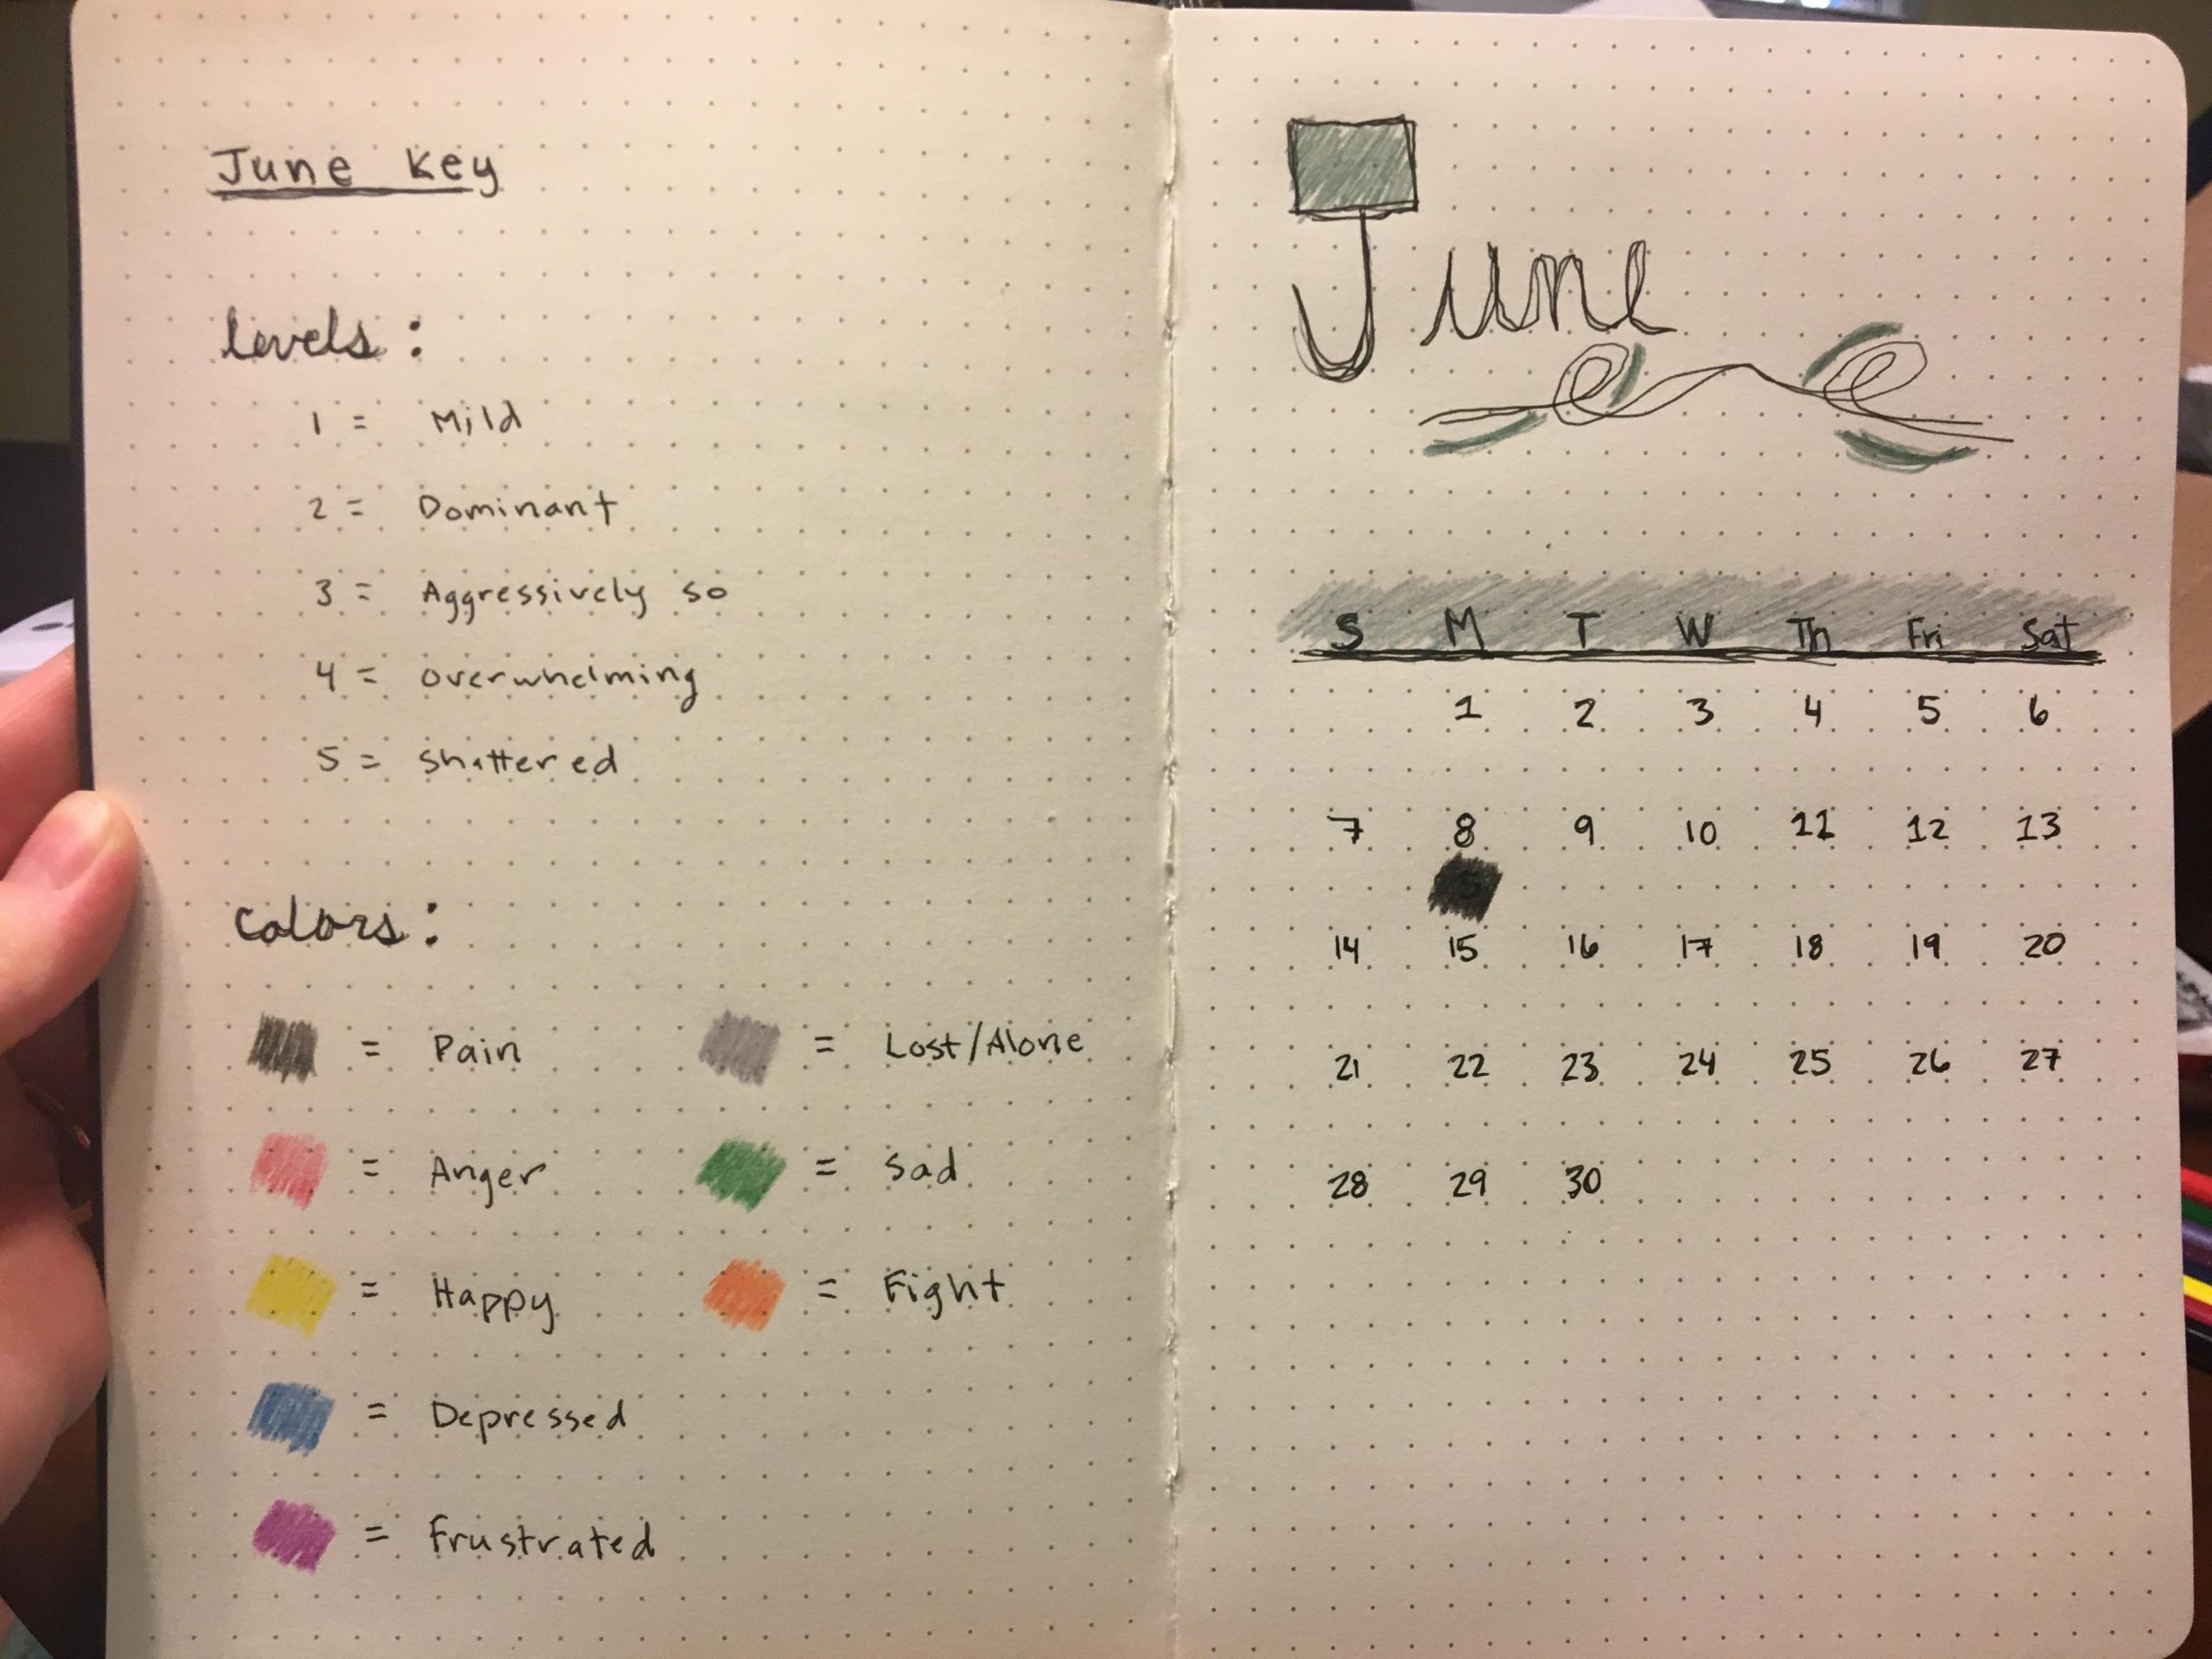 June Key
levels:
1 = Mild
2 = Dominant
3 = Aggressively so
4 = overwhelming
5 = shattered
colors:
= Pain
= Lost/Alone
= Anger
= Sad
= Happy
= Fight
= Depressed
= Frustrated
June
S M T W Th Fri Sat
1 2 3 4 5 6
7 8 9 10 11 12 13
5
14 15 16 17 18 19 20
21 22 23 24 25 26 27
28 29 30